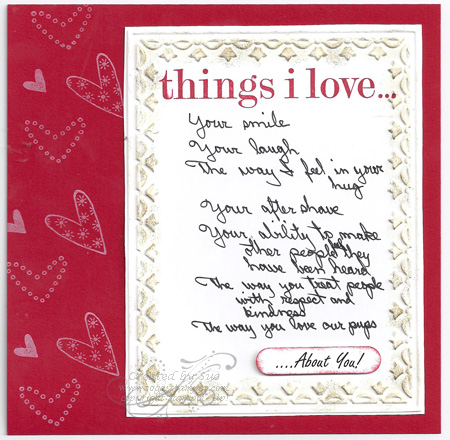 things i love...
Your smile
Your laugh
The way I feel in your
hug
Your after shave
Your, ability to make
other people feel they
have been heard
The way you treat people
with respect and
kindness
The way you love our pups
....About You!
Created by: Sue